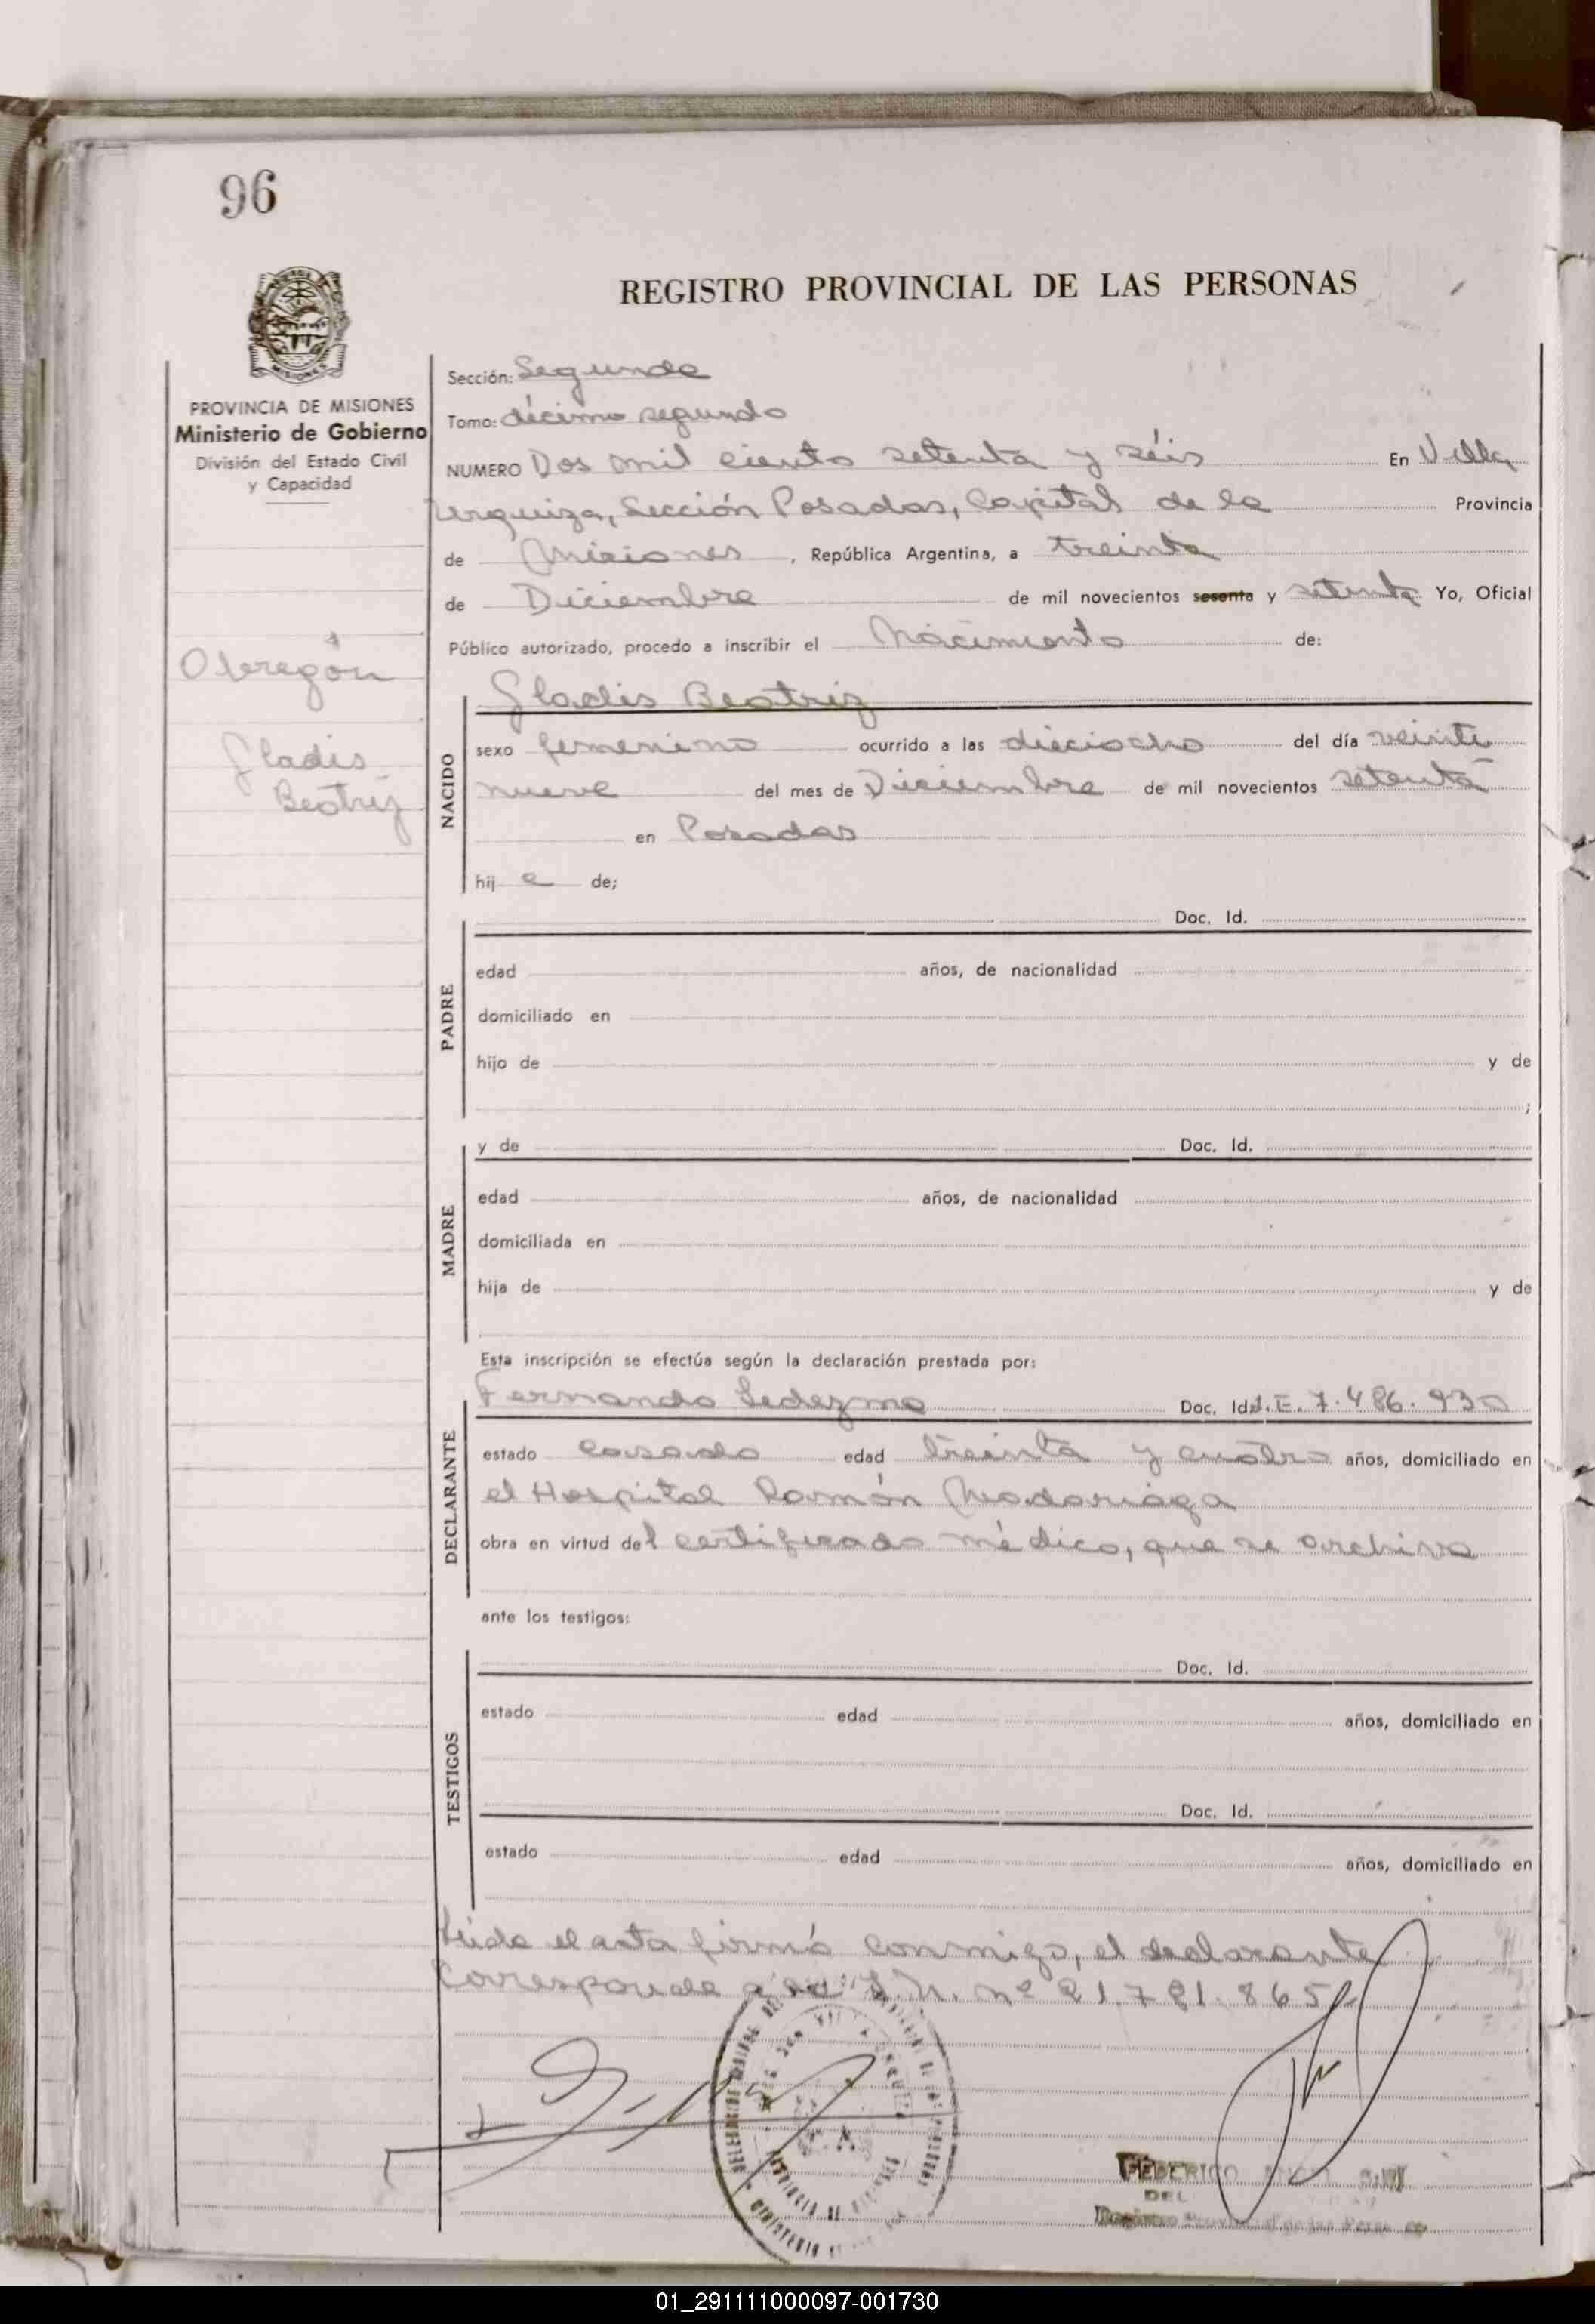 96
REGISTRO PROVINCIAL DE LAS PERSONAS
MISIONES
PROVINCIA DE MISIONES
Ministerio de Gobierno
División del Estado Civil
y Capacidad
Obregón
Gladis
Beatriz
Sección: Segunda
Tomo: décimo segundo
NUMERO Dos mil ciento setenta y séis En Villa
Urquiza, Sección Posadas, Capital de la Provincia
de Misiones, República Argentina, a treinta
de Diciembre de mil novecientos sesenta y setenta Yo, Oficial
Público autorizado, procedo a inscribir el Nacimiento de:
Gladis Beatriz
NACIDO
sexo femenino ocurrido a las dieciocho del día veinti
nueve del mes de Diciembre de mil novecientos setenta
en Posadas
hij a de;
PADRE
Doc. Id.
edad años, de nacionalidad
domiciliado en
hijo de y de
;
MADRE
y de Doc. Id.
edad años, de nacionalidad
domiciliada en
hija de y de
Esta inscripción se efectúa según la declaración prestada por:
DECLARANTE
Fernando Ledezma Doc. Id. L.E. 7.486.930
estado casado edad treinta y cuatro años, domiciliado en
el Hospital Ramón Madariaga
obra en virtud del certificado médico, que se archiva
ante los testigos:
TESTIGOS
Doc. Id.
estado edad años, domiciliado en
Doc. Id.
estado edad años, domiciliado en
Leída el acta firmó conmigo, el declarante
Corresponde a D.N. Nº 21.721.865
FEDERICO
DEL
Registro Provincial de las Personas
01_291111000097-001730